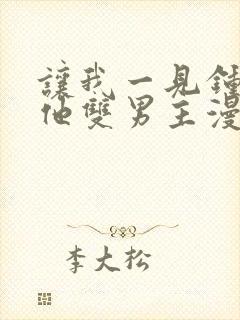 讓我一見鍾
他雙男主漫
李大松